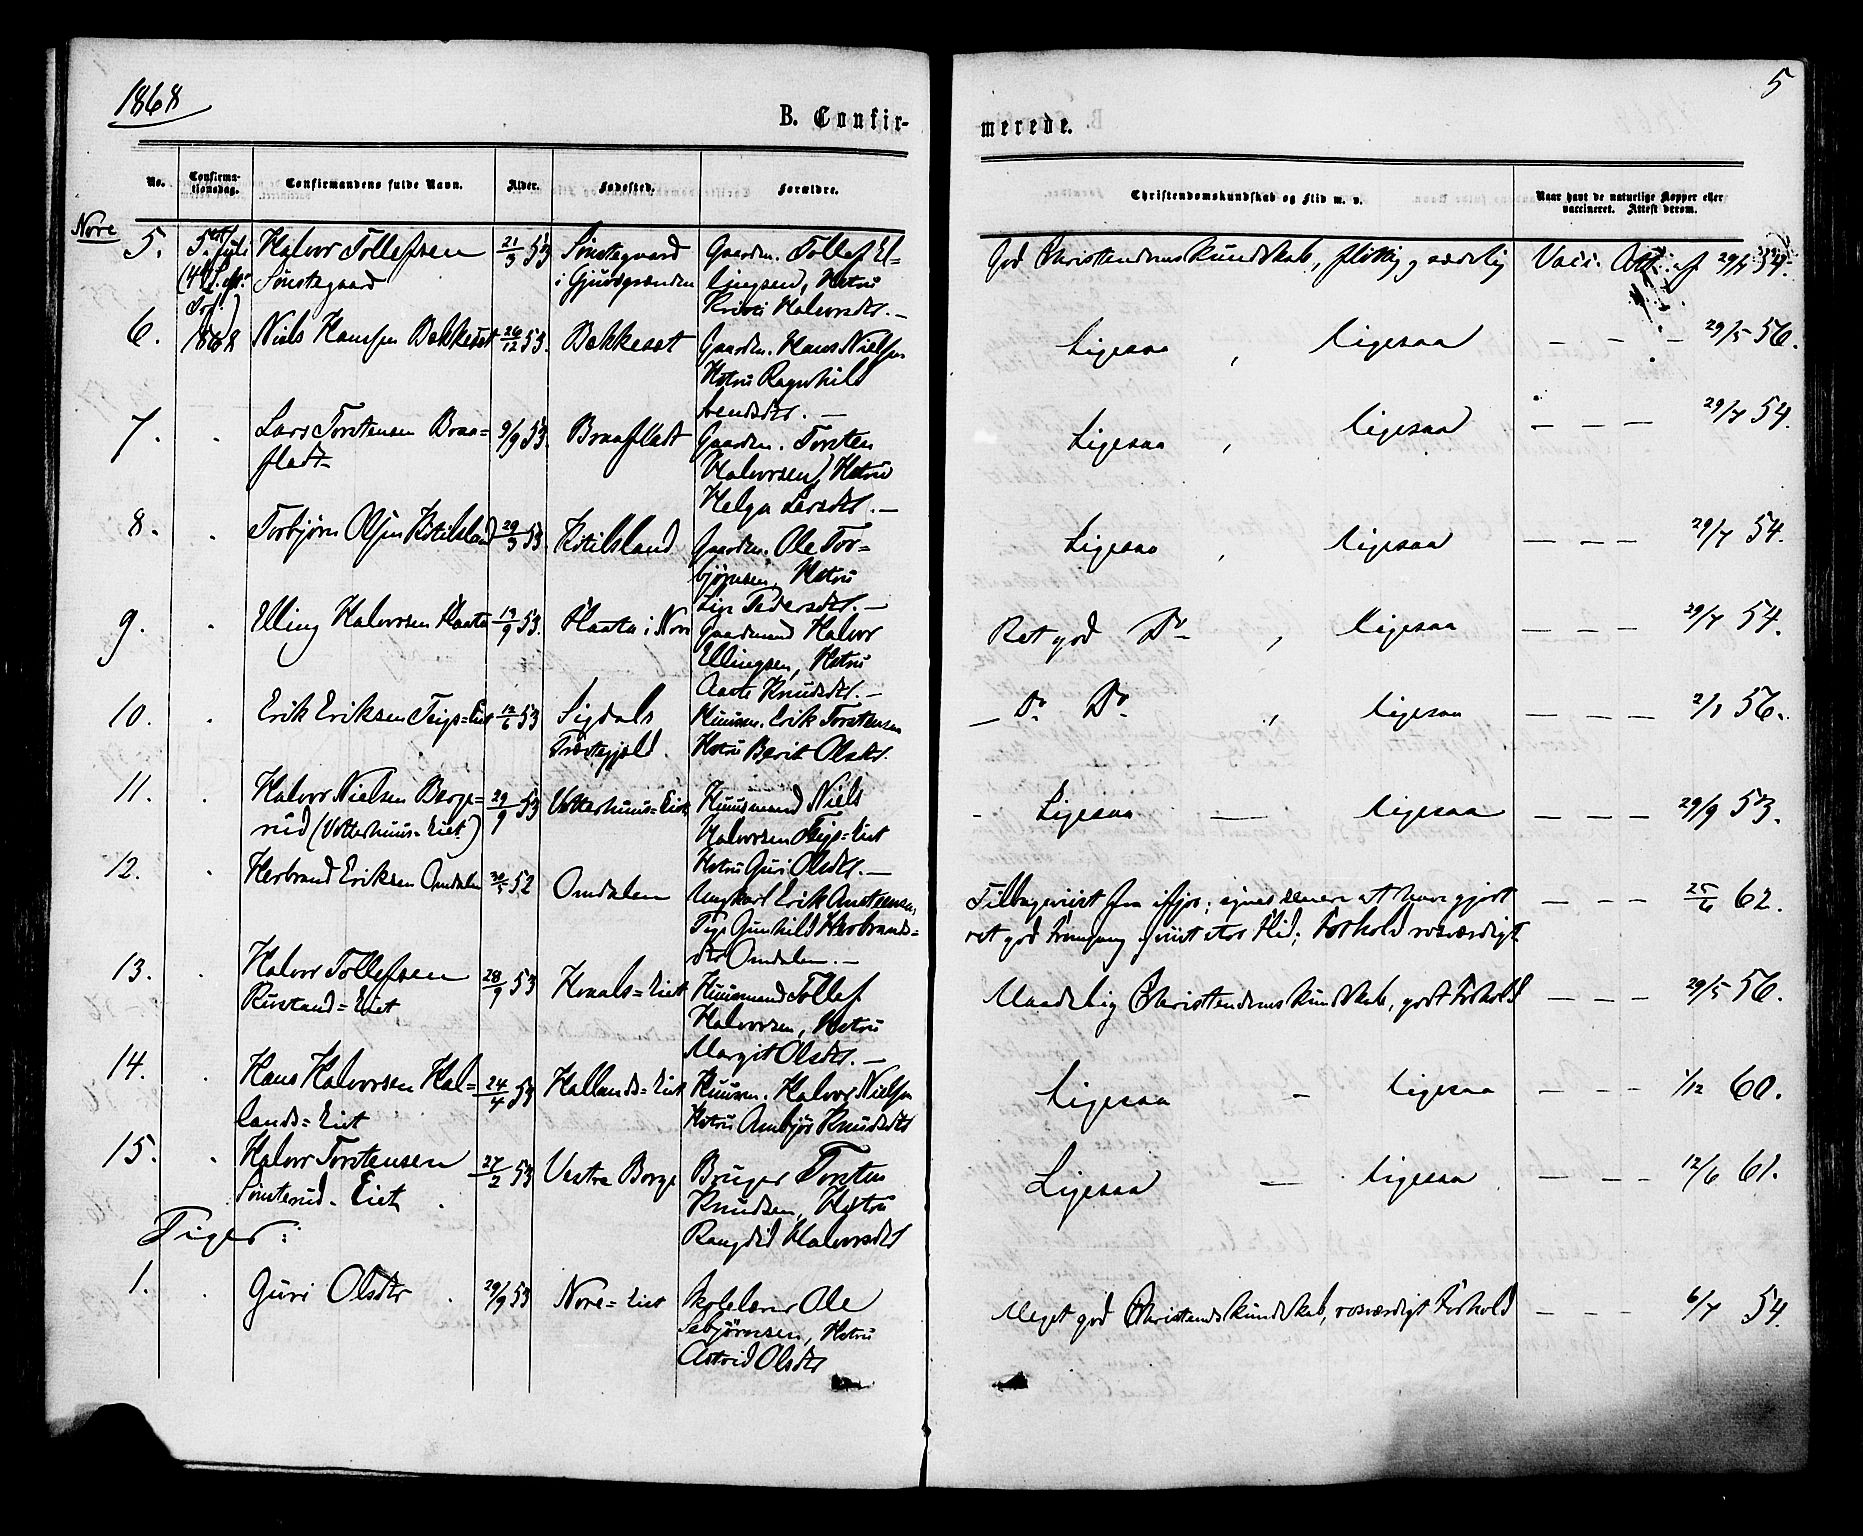 1868
5
B. Confir-
merede.
No.
Confirma-
tionsdag.
Confirmandens fulde Navn.
Alder.
Fødested.
Forældre.
Christendomskundskab og Flid m. v.
Naar havt de naturlige Kopper eller
vaccineret. Attest derom.
Nore
5. 5. Juli Halvor Tollefsen 21/3 53 Sønstegaard Gaardm. Tollef El-
Sønstegaard i Gjuvsgrænden lingsen, Hstru
Halvorsdtr. —
God Christendomskundskab, flittig, sædelig Vacc. Att. af 29/7 54.
6. 1868 Niels Hansen Bekkeset 26/12 53. Bekkeset Gaardm. Hans Nielsen
Hstru Ragnhild
Svendsdtr. —
Ligesaa , ligesaa — — — 29/5 56.
7. Lars Torstensen Braa- 9/9 53. Braafladt Gaardm. Torsten
fladt Halvorsen, Hstru
Helga Larsdtr. —
Ligesaa , ligesaa — — — 29/7 54.
8. Torbjørn Olsen Kitilsland 29/3 53 Kitilsland Gaardm. Ole Tor-
bjørnsen, Hstru
Pedersdtr. —
Ligesaa , ligesaa — — — 29/7 54.
9. Elling Halvorsen Haata 19/9 53. Haata i Nore Gaardmand Halvor
Ellingsen, Hstru
Aaste Knudsdtr. —
Ret god Do , ligesaa — — — 29/7 54.
10. Erik Eriksen Teigs=Eiet 12/6 53 Sigdals Huusm. Erik Torstensen
Præstegjeld. Hstru Berit Olsdtr.
— Do Do , ligesaa — — — 2/8 56.
11. Halvor Nielsen Berge- 29/9 53 Votterhuus=Eiet Huusmand Niels
rud (Votterhuus=Eiet) Halvorsen Teigs=Eiet
Hstru Guri Olsdtr. —
- Ligesaa — ligesaa — — — 29/9 53.
12. Herbrand Eriksen Omdalen 52 Omdalen Ungkarl Erik Amstensen,
Pige Gunhild Herbrands-
dtr Omdalen. —
Tilbageviist fra ifjor; synes senere at have gjort — — — 25/6 62.
ret god Fremgang, viist stor Flid; Forhold rosværdigt.
13. Halvor Tollefsen 28/9 53 Kraals=Eiet Huusmand Tollef
Rustand=Eiet Halvorsen, Hstru
Margit Olsdtr. —
Maadelig Christendomskundskab, godt Forhold — — — 29/5 56.
14. Hans Halvorsen Hal- 24/4 53 Hallands=Eiet Huusm. Halvor Nielsen
lands=Eiet Hstru Ambjør Knudsdtr
Ligesaa — ligesaa — — — 1/12 60.
15. Halvor Torstensen 27/2 53 Vestre Borge Bruger Torsten
Sønsterud-Eiet Knudsen, Hstru
Rangdid Halvorsdtr
Ligesaa — ligesaa — — — 12/6 61.
Piger:
1. Guri Olsdtr 29/9 53 Nore=Eiet Skolelærer Ole
Sebjørnsen, Hstru
Astrid Olsdtr
Meget god Christendskundskab, rosværdigt Forhold — — — 6/7 54.